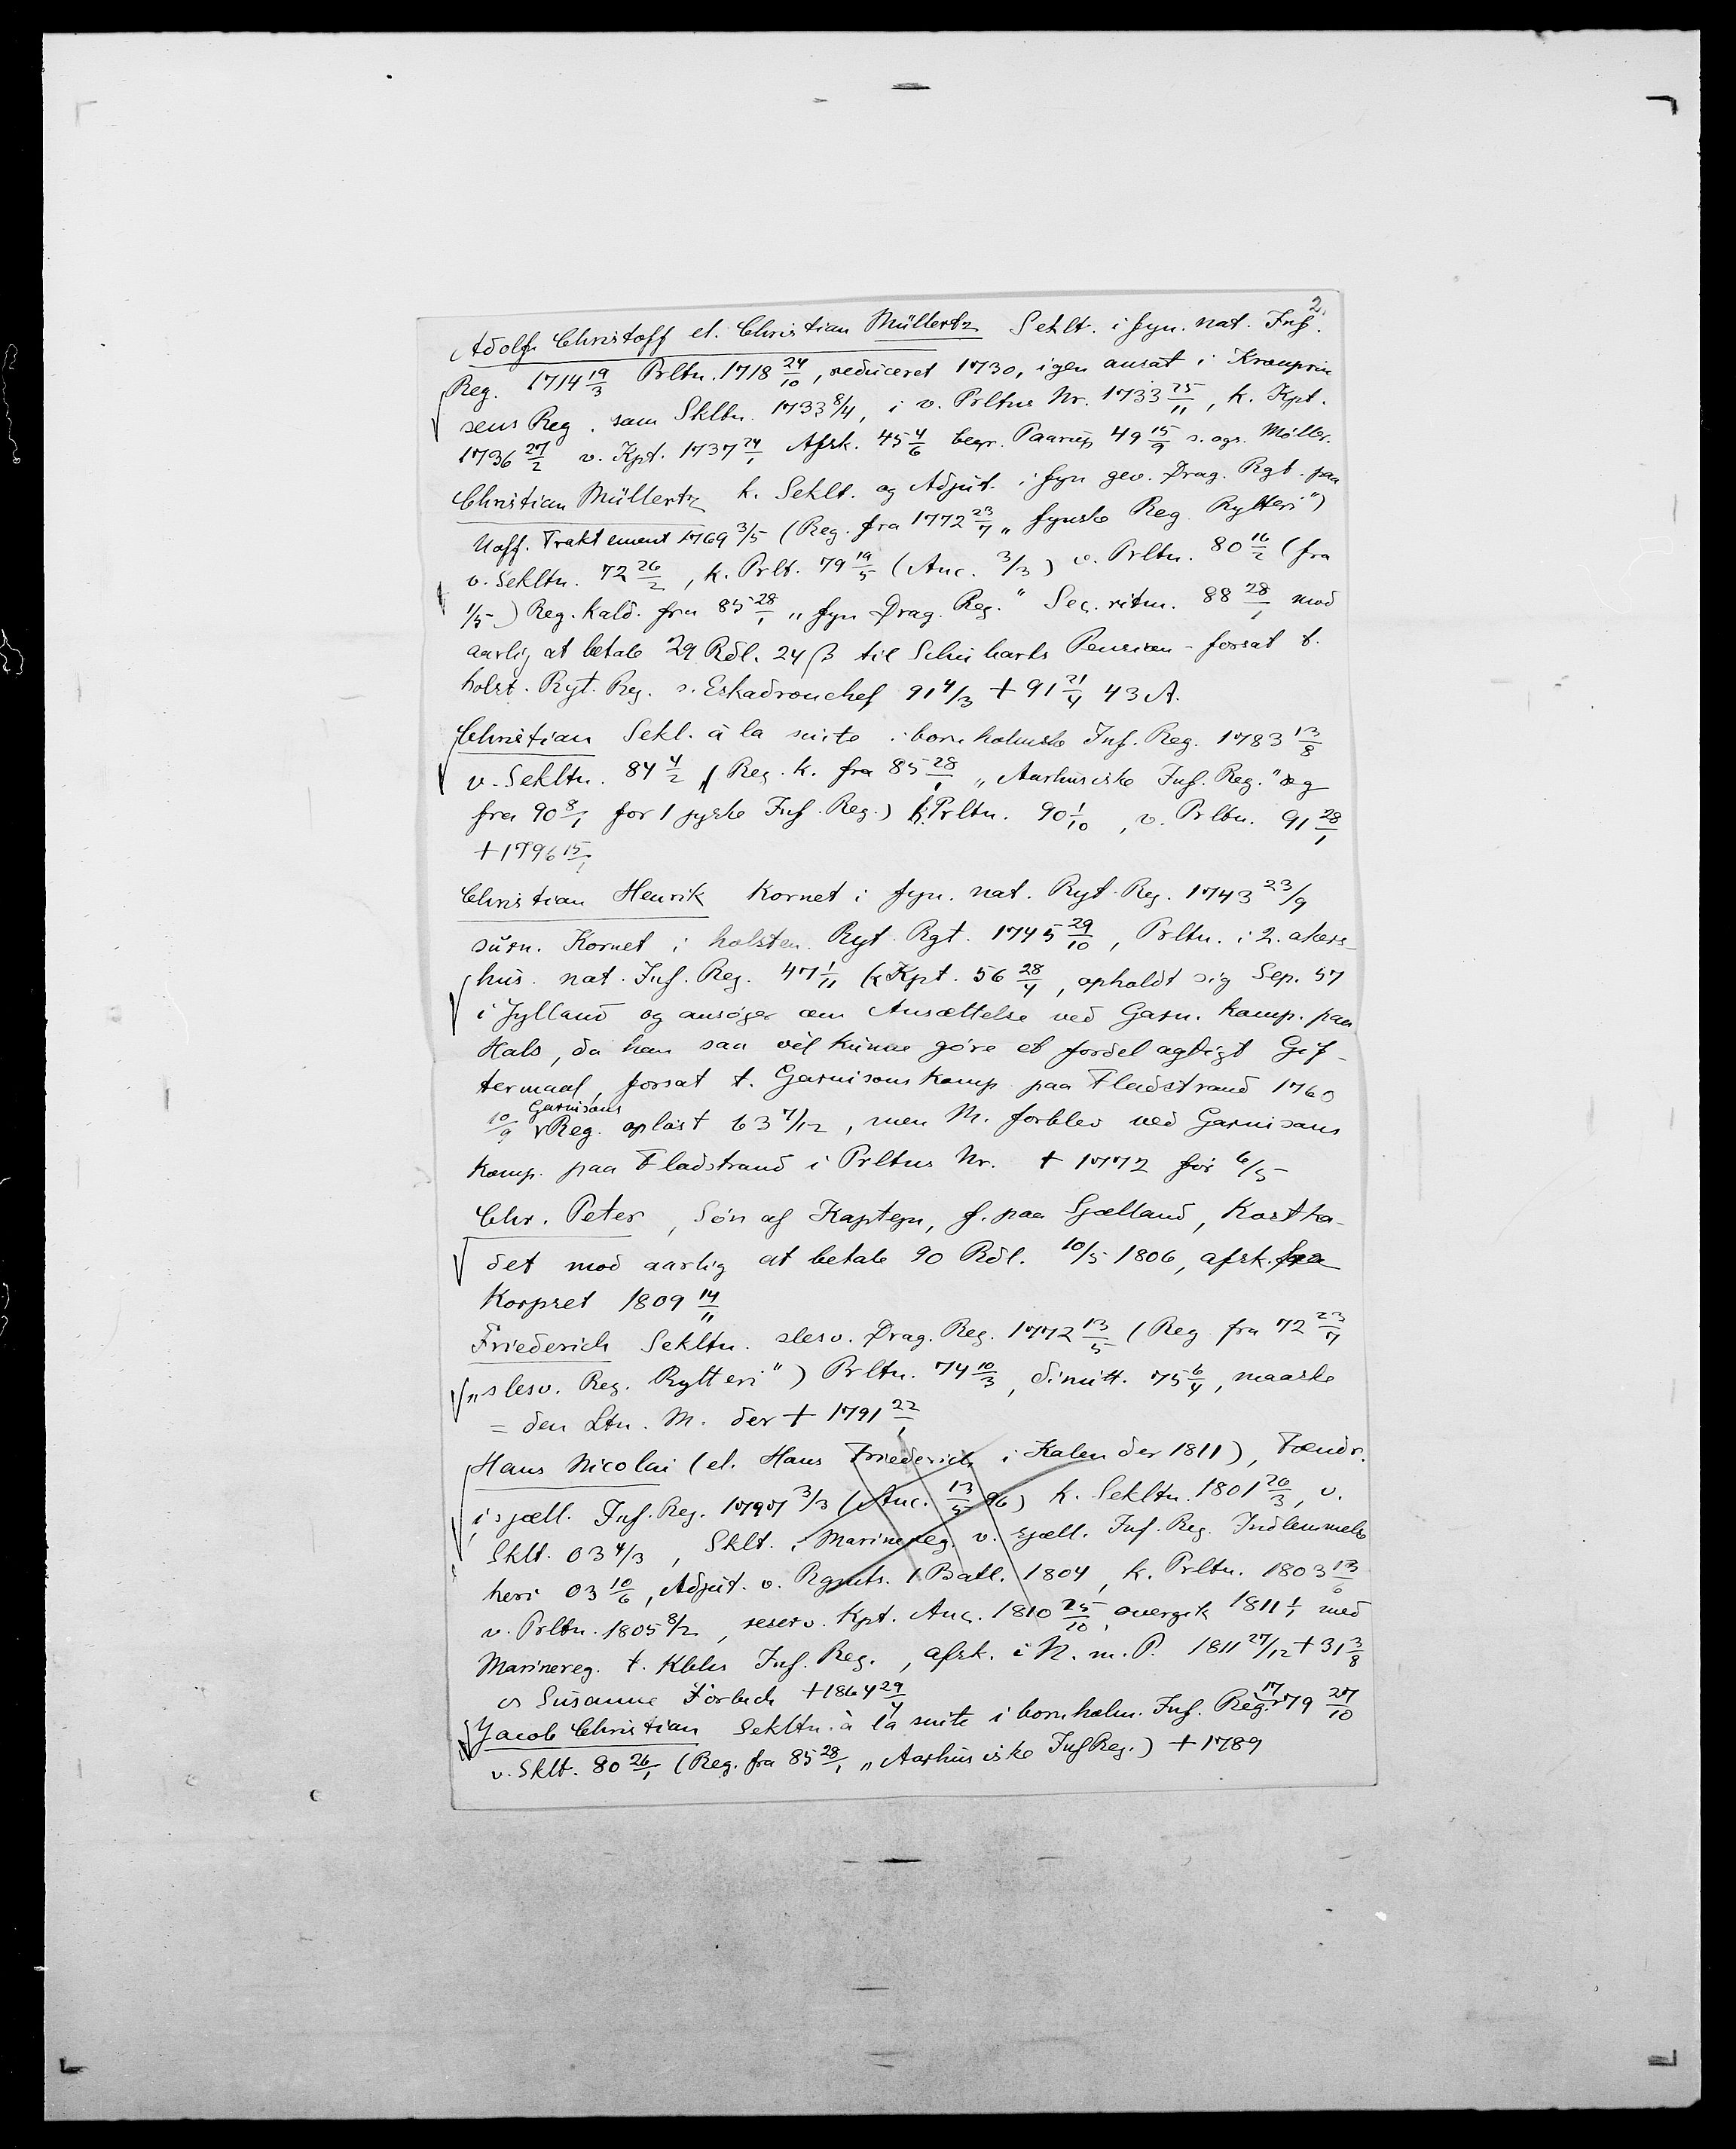 2.
Adolf Christoff el. Christian Müllertz Seklt. i fyn. nat. Inf.
Reg. 1714 19/3 Prltn. 1718 24/10, reduceret 1730, igen ansat i Kronprin
sens Reg. som Skltn. 1733 8/4, i v. Prltns Nr. 1733 25/11, k. Kpt.
1736 27/2 v. Kpt. 1737 24/1 Afsk. 45 4/6 begr. Paarup 49 15/9 s. ogs. Møller.
Christian Müllertz k. Seklt. og Adjut. i fyn gev. Drag. Rgt. paa
Uoff. Traktement 1769 3/5 (Reg. fra 1772 23/7 „fynske Reg. Rytteri")
v. Sekltn. 72 26/2, k. Prlt. 79 19/5 (Anc. 3/3) v. Prltn. 80 16/2 (fra
1/5) Reg. kald. fra 85 28/1 „fyn Drag. Reg." Sec. ritm. 88 28/1 mod
aarlig at betale 29 Rdl. 24 ß til Schuharts Pension - forsat t.
holst. Ryt. Reg. s. Eskadronchef 91 4/3 + 91 21/4 43 A.
Christian Sekl. à la suite i bornholmske Inf. Reg. 1783 13/8
v. Sekltn. 84 4/2 (Reg. k. fra 85 28/1 „Aarhusiske Inf. Reg." og
fra 90 8/1 for 1 jyske Inf. Reg.) k. Prltn. 90 1/10, v. Prltn. 91 28/1
+ 1796 15/1
Christian Henrik Kornet i fyn. nat. Ryt. Reg. 1743 23/9
surn. Kornet i holsten. Ryt. Rgt. 1745 29/10, Prltn. i 2. akers-
hus. nat. Inf. Reg. 47 1/11 k Kpt. 56 28/4, opholdt sig Sep. 57
i Jylland og ansøger om Ansættelse ved Garn. Komp. paa
Hals, da han saa vil kunne gøre et fordelagtigt Gif-
termaal, forsat t. Garnisons Komp. paa Fladstrand 1760
10/9 Garnisons Reg. opløst 63 7/12, men M. forblev ved Garnisons
Komp. paa Fladstrand i Prltns Nr. + 1772 før 6/5
Chr. Peter, Søn af Kaptejn, f. paa Sjælland, Kostka-
det mod aarlig at betale 90 Rdl. 10/5 1806, afsk. fra
Korpset 1809 14/11
Friederich Sekltn. slesv. Drag. Reg. 1772 13/5 (Reg fra 72 23/7
„slesv. Reg. Rytteri") Prltn. 74 10/3, dimitt. 75 6/4, maaske
= den Ltn. M. der + 1791 22/1
Hans Nicolai (el. Hans Friederich i Kalender 1811), Fændr.
i sjæll. Inf. Reg. 1797 3/3 (Anc. 13/5 96) k. Sekltn. 1801 20/3, v.
Sklt. 03 4/3, Sklt. i Marinereg. v. sjæll. Inf. Reg. Indlemmelse
heri 03 10/6, Adjut. v. Rgmts. 1 Batl. 1804, k. Prltn. 1803 13/6
v. Prltn. 1805 8/2, reserv. Kpt. Anc. 1810 25/10, overgik 1811 1/1 med
Marinereg. t. Kbhs Inf. Reg., afsk. i N. m. P. 1811 27/12 + 31 3/8
∞ Susanne Førlich + 1864 29/4
Jacob Christian Sekltn. à la suite i bornholm. Inf. Reg. 1779 27/10
v. Sklt. 80 26/1 (Reg. fra 85 28/1 „Aarhusiske Inf Reg.) + 1789